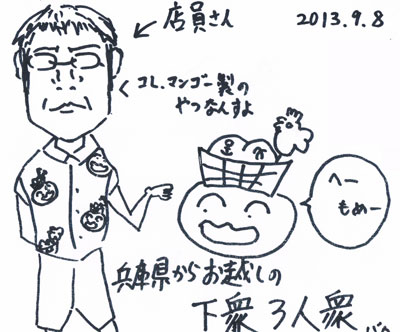 店員さん
2013.9.8
コレ、マンゴー製の
やつなんすよ
へー
もめー
兵庫県からお越しの
下衆3人衆